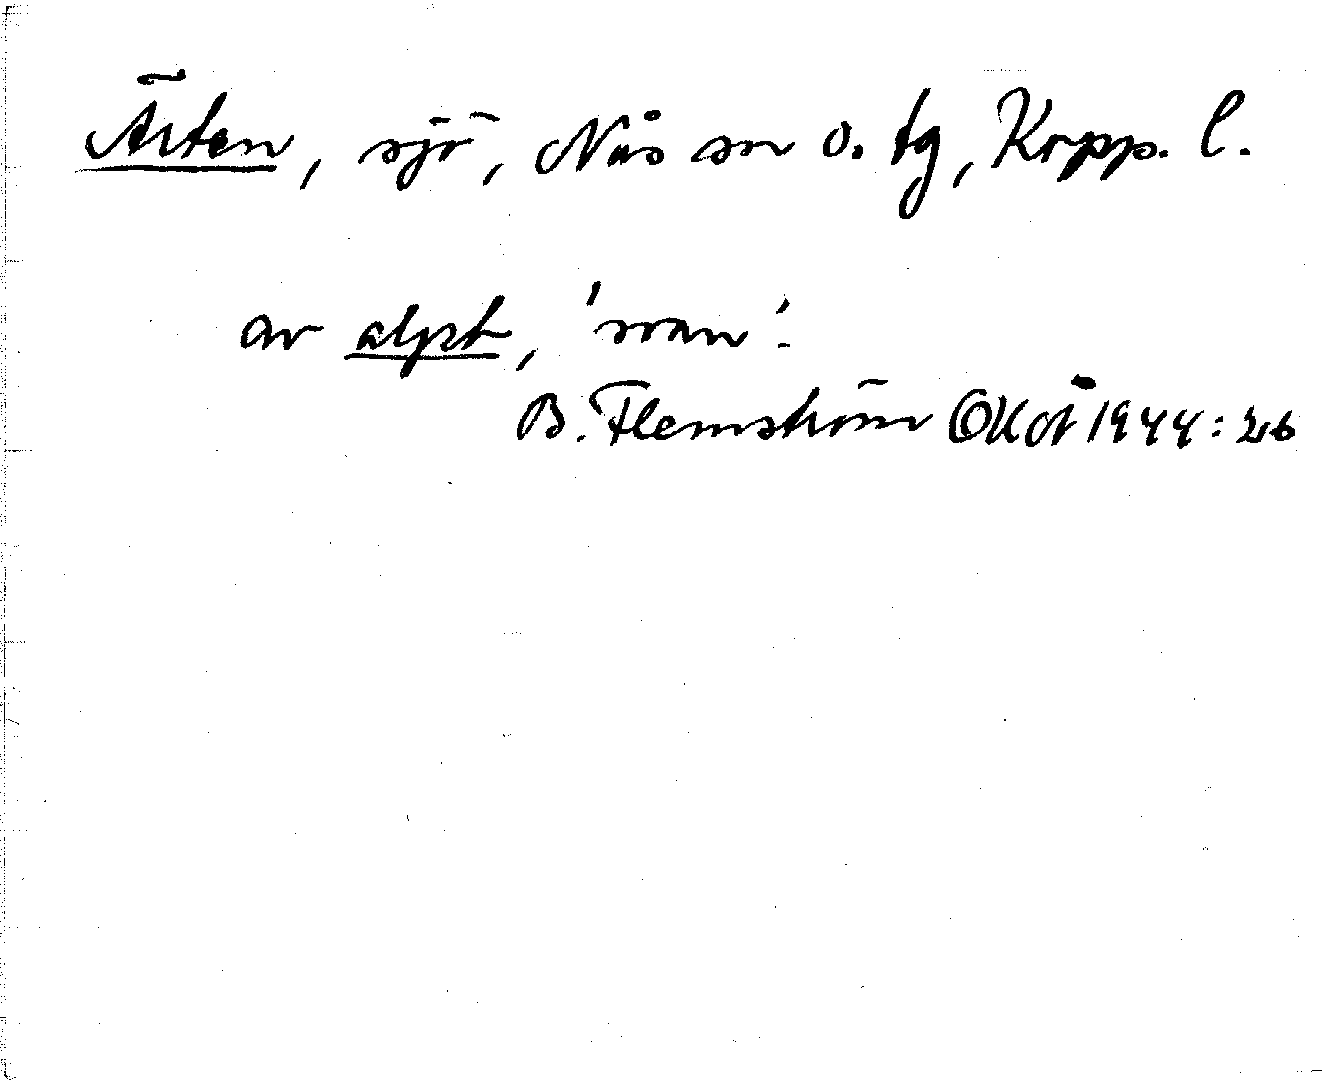 Ärten, sjö, Nås sn o. tg, Kopp. l.
av alpt, 'svan'.
B. Flemström OKOÅ 1944: 26